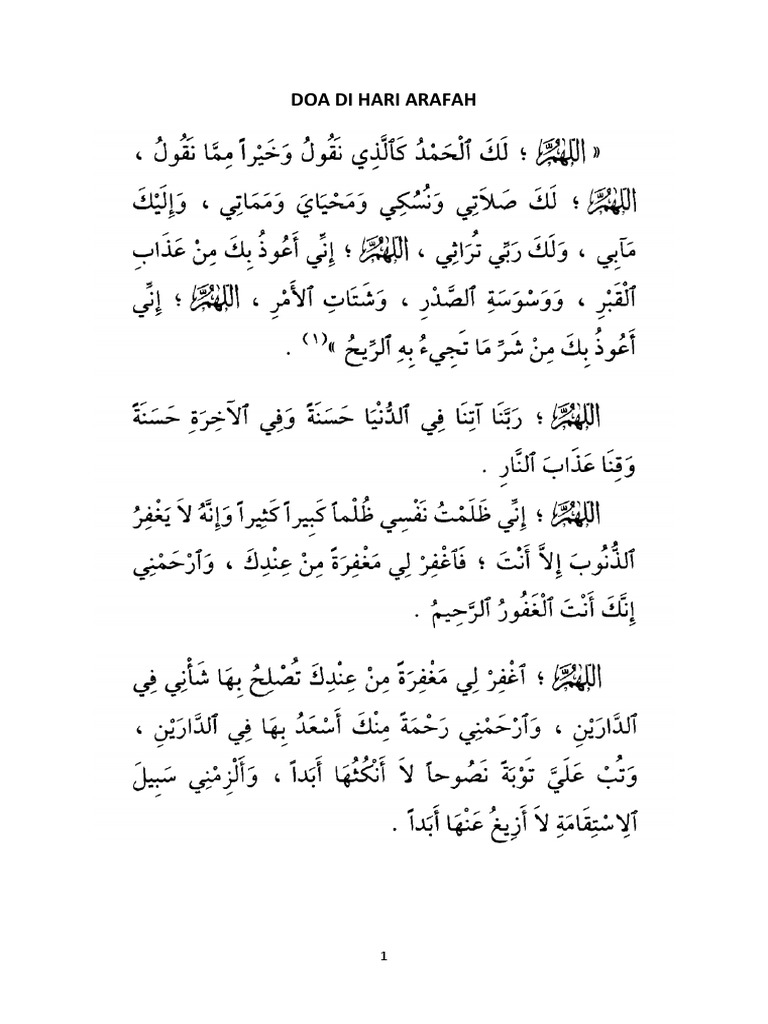 DOA DI HARI ARAFAH
« اللَّهُمَّ ؛ لَكَ ٱلْحَمْدُ كَٱلَّذِي نَقُولُ وَخَيْراً مِمَّا نَقُولُ ،
اللَّهُمَّ ؛ لَكَ صَلاَتِي وَنُسُكِي وَمَحْيَايَ وَمَمَاتِي ، وَإِلَيْكَ
مَآبِي ، وَلَكَ رَبِّي تُرَاثِي ، اللَّهُمَّ ؛ إِنِّي أَعُوذُ بِكَ مِنْ عَذَابِ
ٱلْقَبْرِ ، وَوَسْوَسَةِ ٱلصَّدْرِ ، وَشَتَاتِ ٱلأَمْرِ ، اللَّهُمَّ ؛ إِنِّي
أَعُوذُ بِكَ مِنْ شَرِّ مَا تَجِيءُ بِهِ ٱلرِّيحُ »(١) .
اللَّهُمَّ ؛ رَبَّنَا آتِنَا فِي ٱلدُّنْيَا حَسَنَةً وَفِي ٱلآخِرَةِ حَسَنَةً
وَقِنَا عَذَابَ ٱلنَّارِ .
اللَّهُمَّ ؛ إِنِّي ظَلَمْتُ نَفْسِي ظُلْماً كَبِيراً كَثِيراً وَإِنَّهُ لاَ يَغْفِرُ
ٱلذُّنُوبَ إِلاَّ أَنْتَ ؛ فَٱغْفِرْ لِي مَغْفِرَةً مِنْ عِنْدِكَ ، وَٱرْحَمْنِي
إِنَّكَ أَنْتَ ٱلْغَفُورُ ٱلرَّحِيمُ .
اللَّهُمَّ ؛ ٱغْفِرْ لِي مَغْفِرَةً مِنْ عِنْدِكَ تُصْلِحُ بِهَا شَأْنِي فِي
ٱلدَّارَيْنِ ، وَٱرْحَمْنِي رَحْمَةً مِنْكَ أَسْعَدُ بِهَا فِي ٱلدَّارَيْنِ ،
وَتُبْ عَلَيَّ تَوْبَةً نَصُوحاً لاَ أَنْكُثُهَا أَبَداً ، وَأَلْزِمْنِي سَبِيلَ
ٱلِاسْتِقَامَةِ لاَ أَزِيغُ عَنْهَا أَبَداً .
1